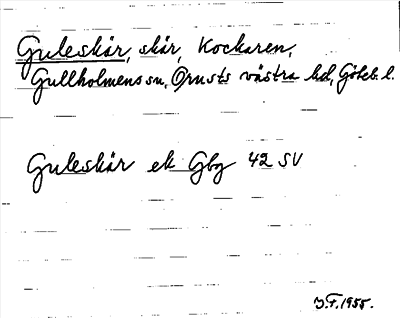 Guleskär, skär, Kockaren,
Gullholmens sn, Orusts västra hd, Göteb. l.
Guleskär ek Gbg 42 SV
J.F. 1955.